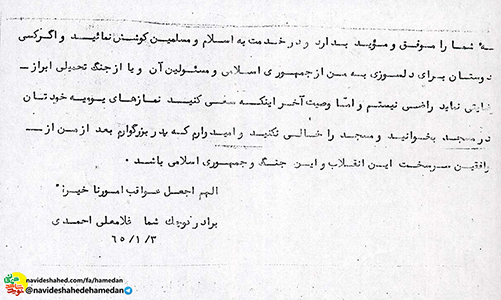 شما را موفق و مؤید بدارد و در خدمت به اسلام و مسلمین کوشش نمائید و اگر کسی
دوستان برای دلسوزی به من از جمهوری اسلامی و مسئولین آن و یا از جنگ تحمیلی ابراز
نماید راضی نیستم و امّا وصیت آخر اینکه سعی کنید نمازهای یومیه خودتان
در مسجد بخوانید و مسجد را خالی نکنید و امیدوارم که پدر بزرگوارم بعد از من از
رافقین سرسخت این انقلاب و این جنگ و جمهوری اسلامی باشد .
الهم اجعل عواقب امورنا خیرا"
برادر کوچک شما غلامعلی احمدی
۶۵/۱/۳
navideshahed.com/fa/hamedan
@navideshahedehamedan